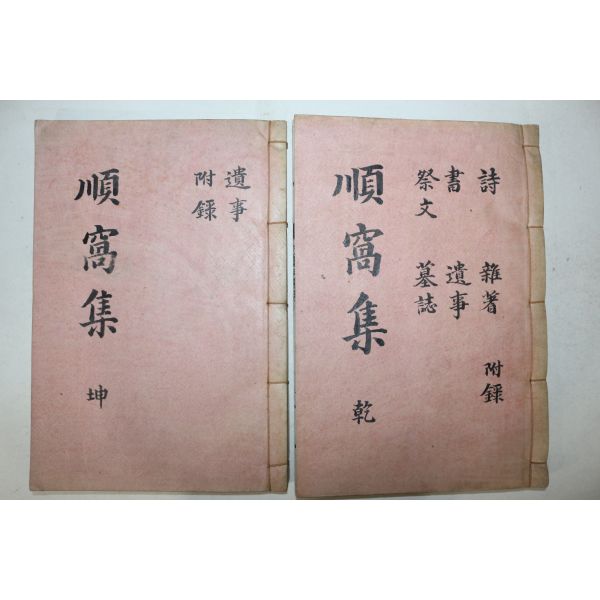 順窩集 坤
遺事
附錄
順窩集 乾
詩 雜著 附錄
書 遺事
祭文 墓誌